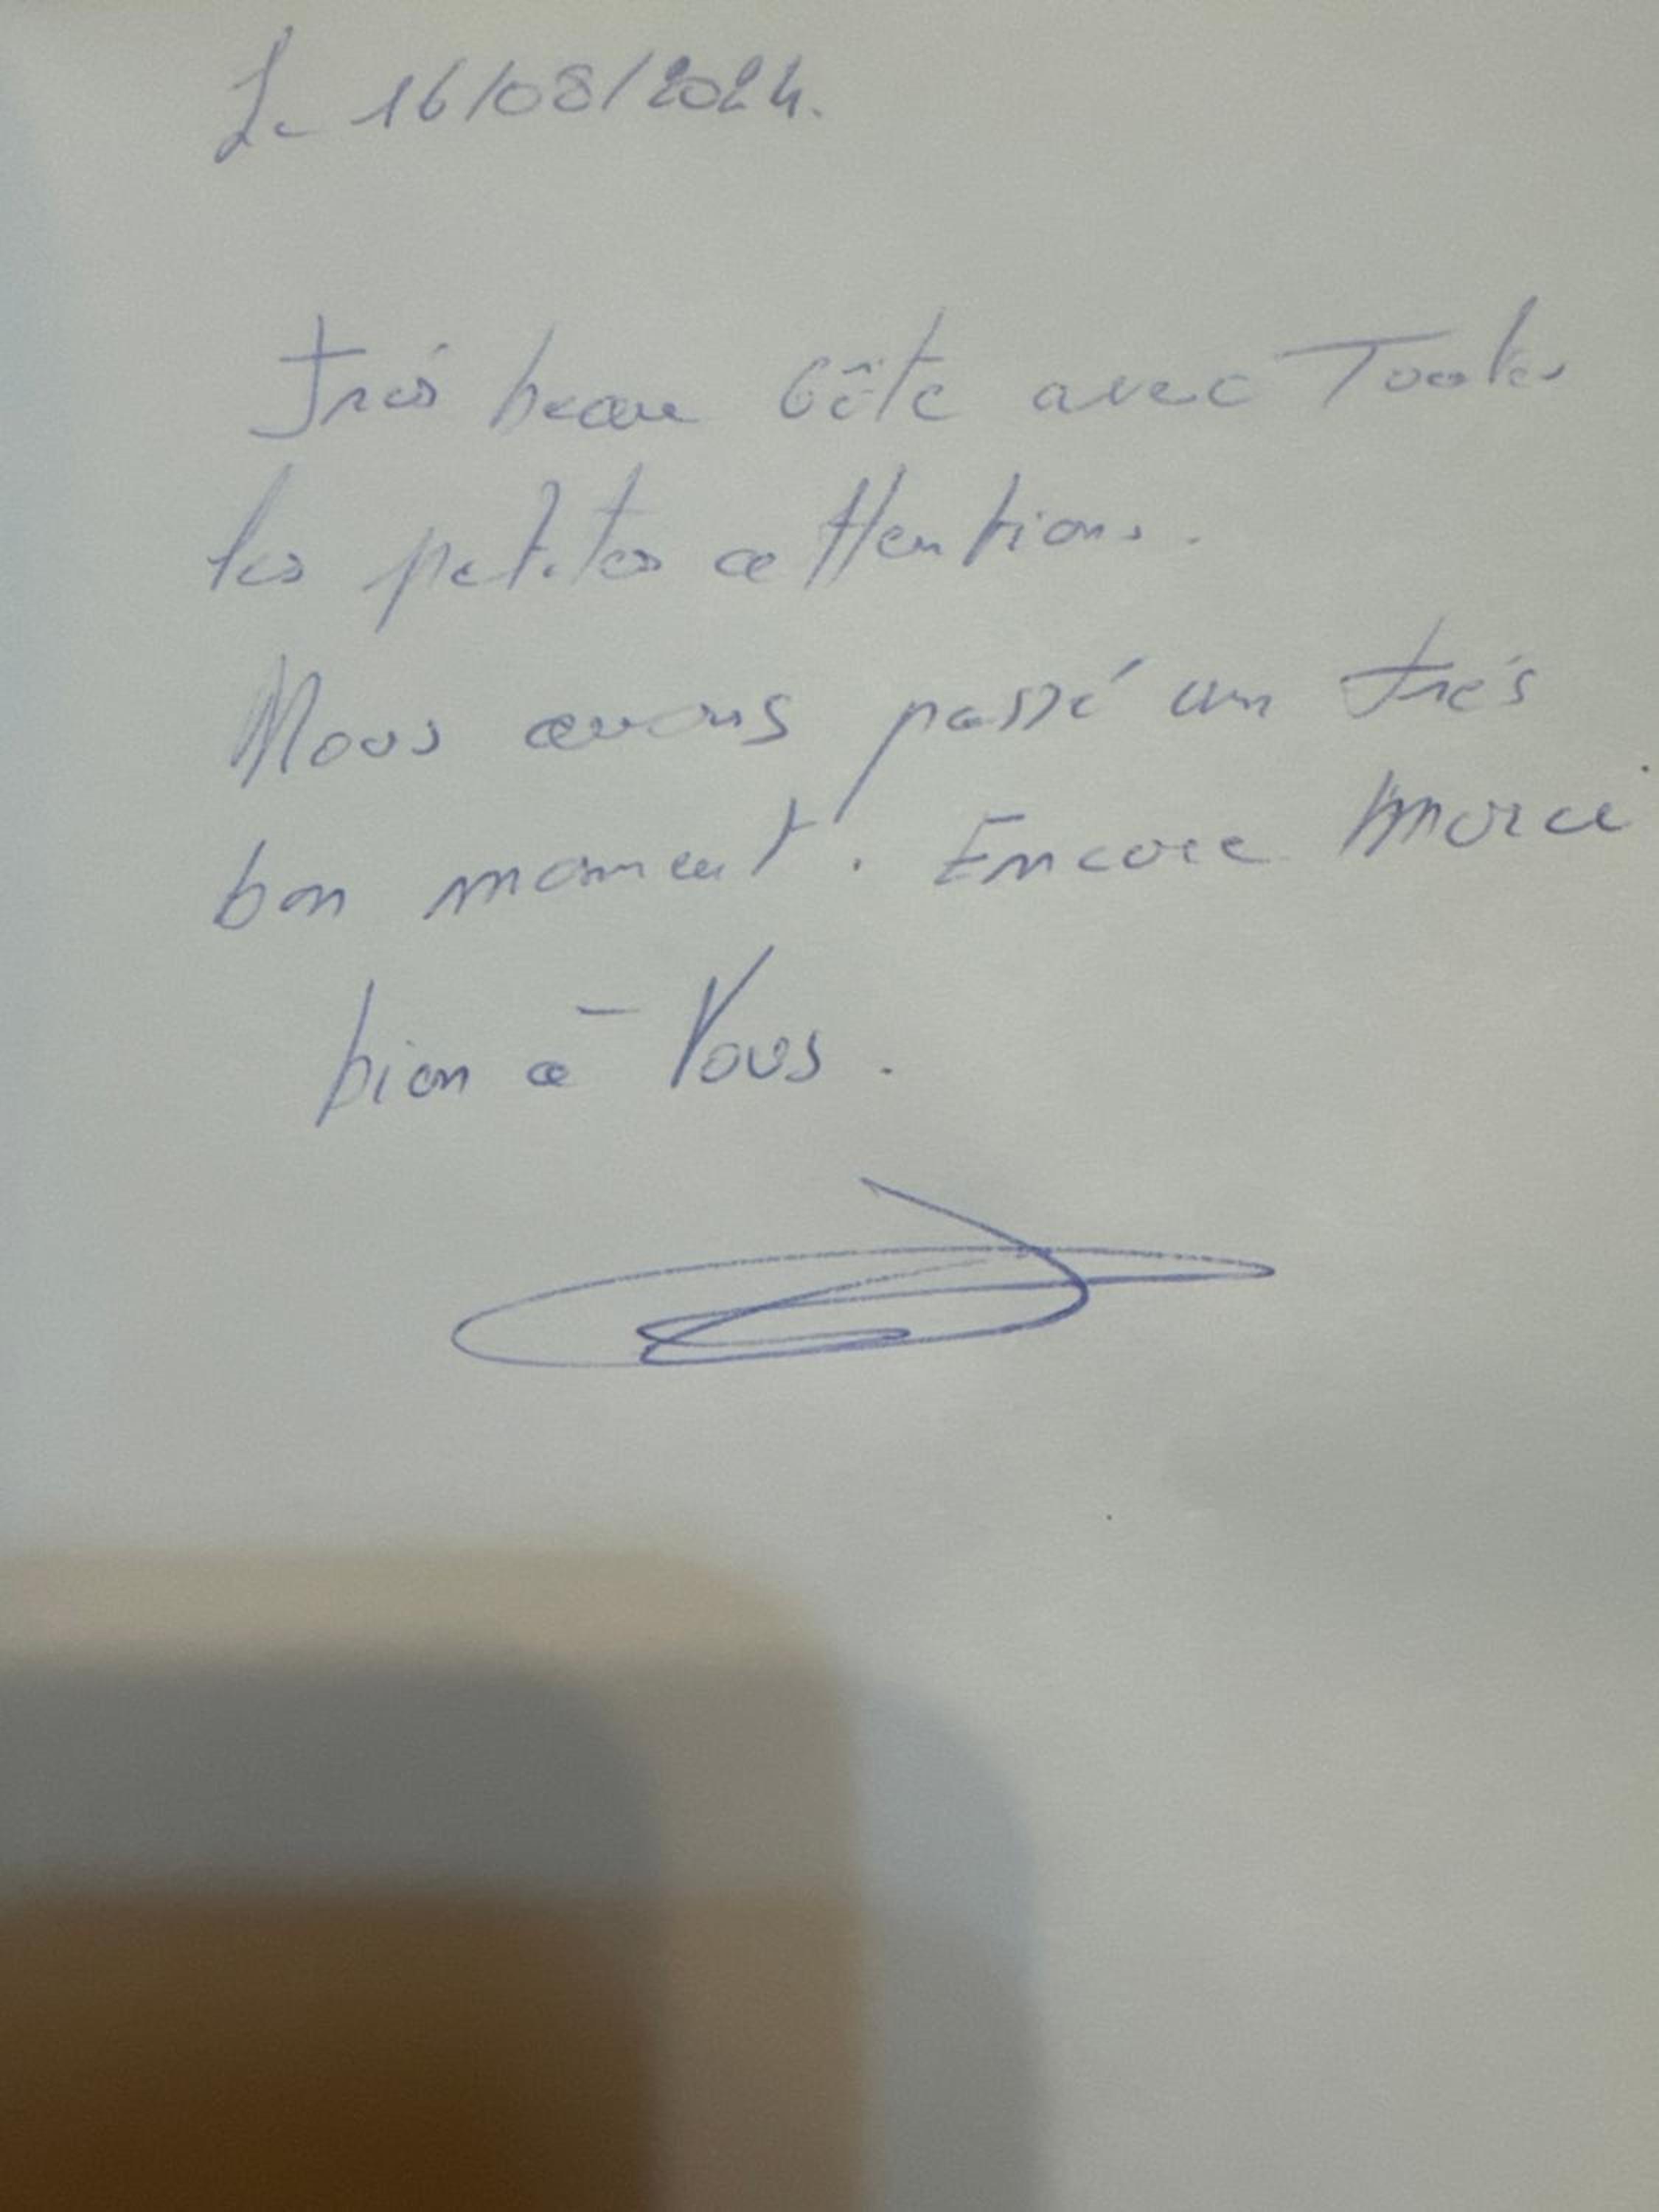 Le 16/08/2024.
très beau Gîte avec Toutes
les petites attentions.
Nous avons passé un très
bon moment. Encore Merci
bien à Vous.